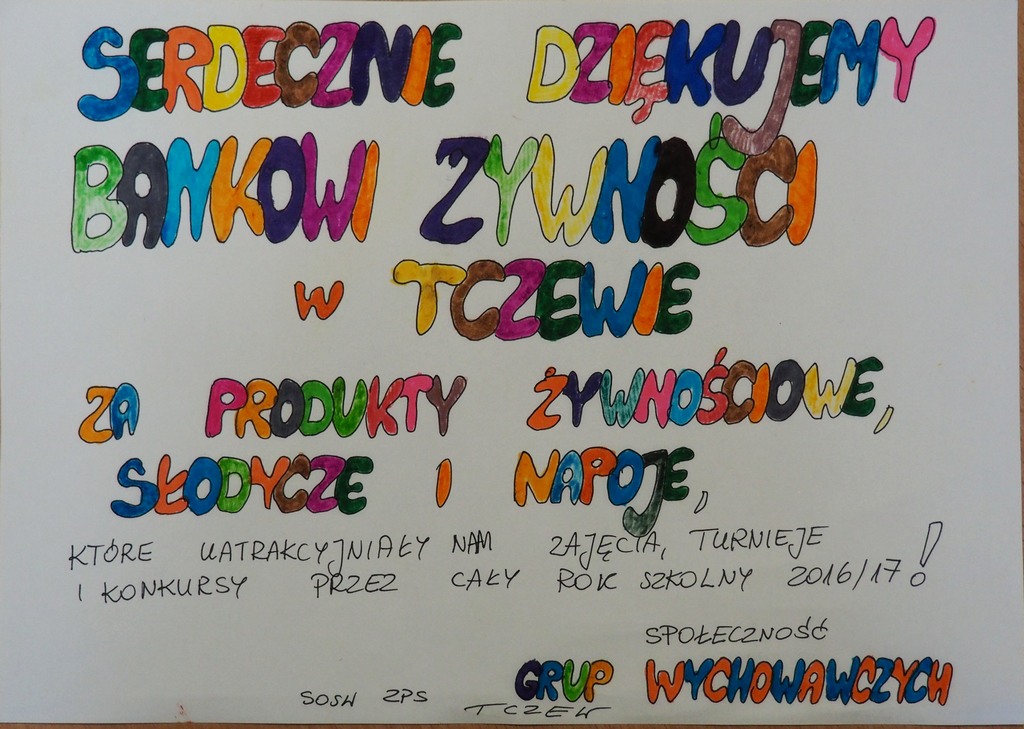 SERDECZNIE DZIĘKUJEMY
BANKOWI ZYWNOŚCI
w TCZEWIE
ZA PRODUKTY ŻYWNOŚCIOWE,
SŁODYCZE I NAPOJE,
KTÓRE UATRAKCYJNIAŁY NAM ZAJĘCIA, TURNIEJE
I KONKURSY PRZEZ CAŁY ROK SZKOLNY 2016/17!
SPOŁECZNOŚĆ
GRUP WYCHOWAWCZYCH
SOSW ZPS TCZEW